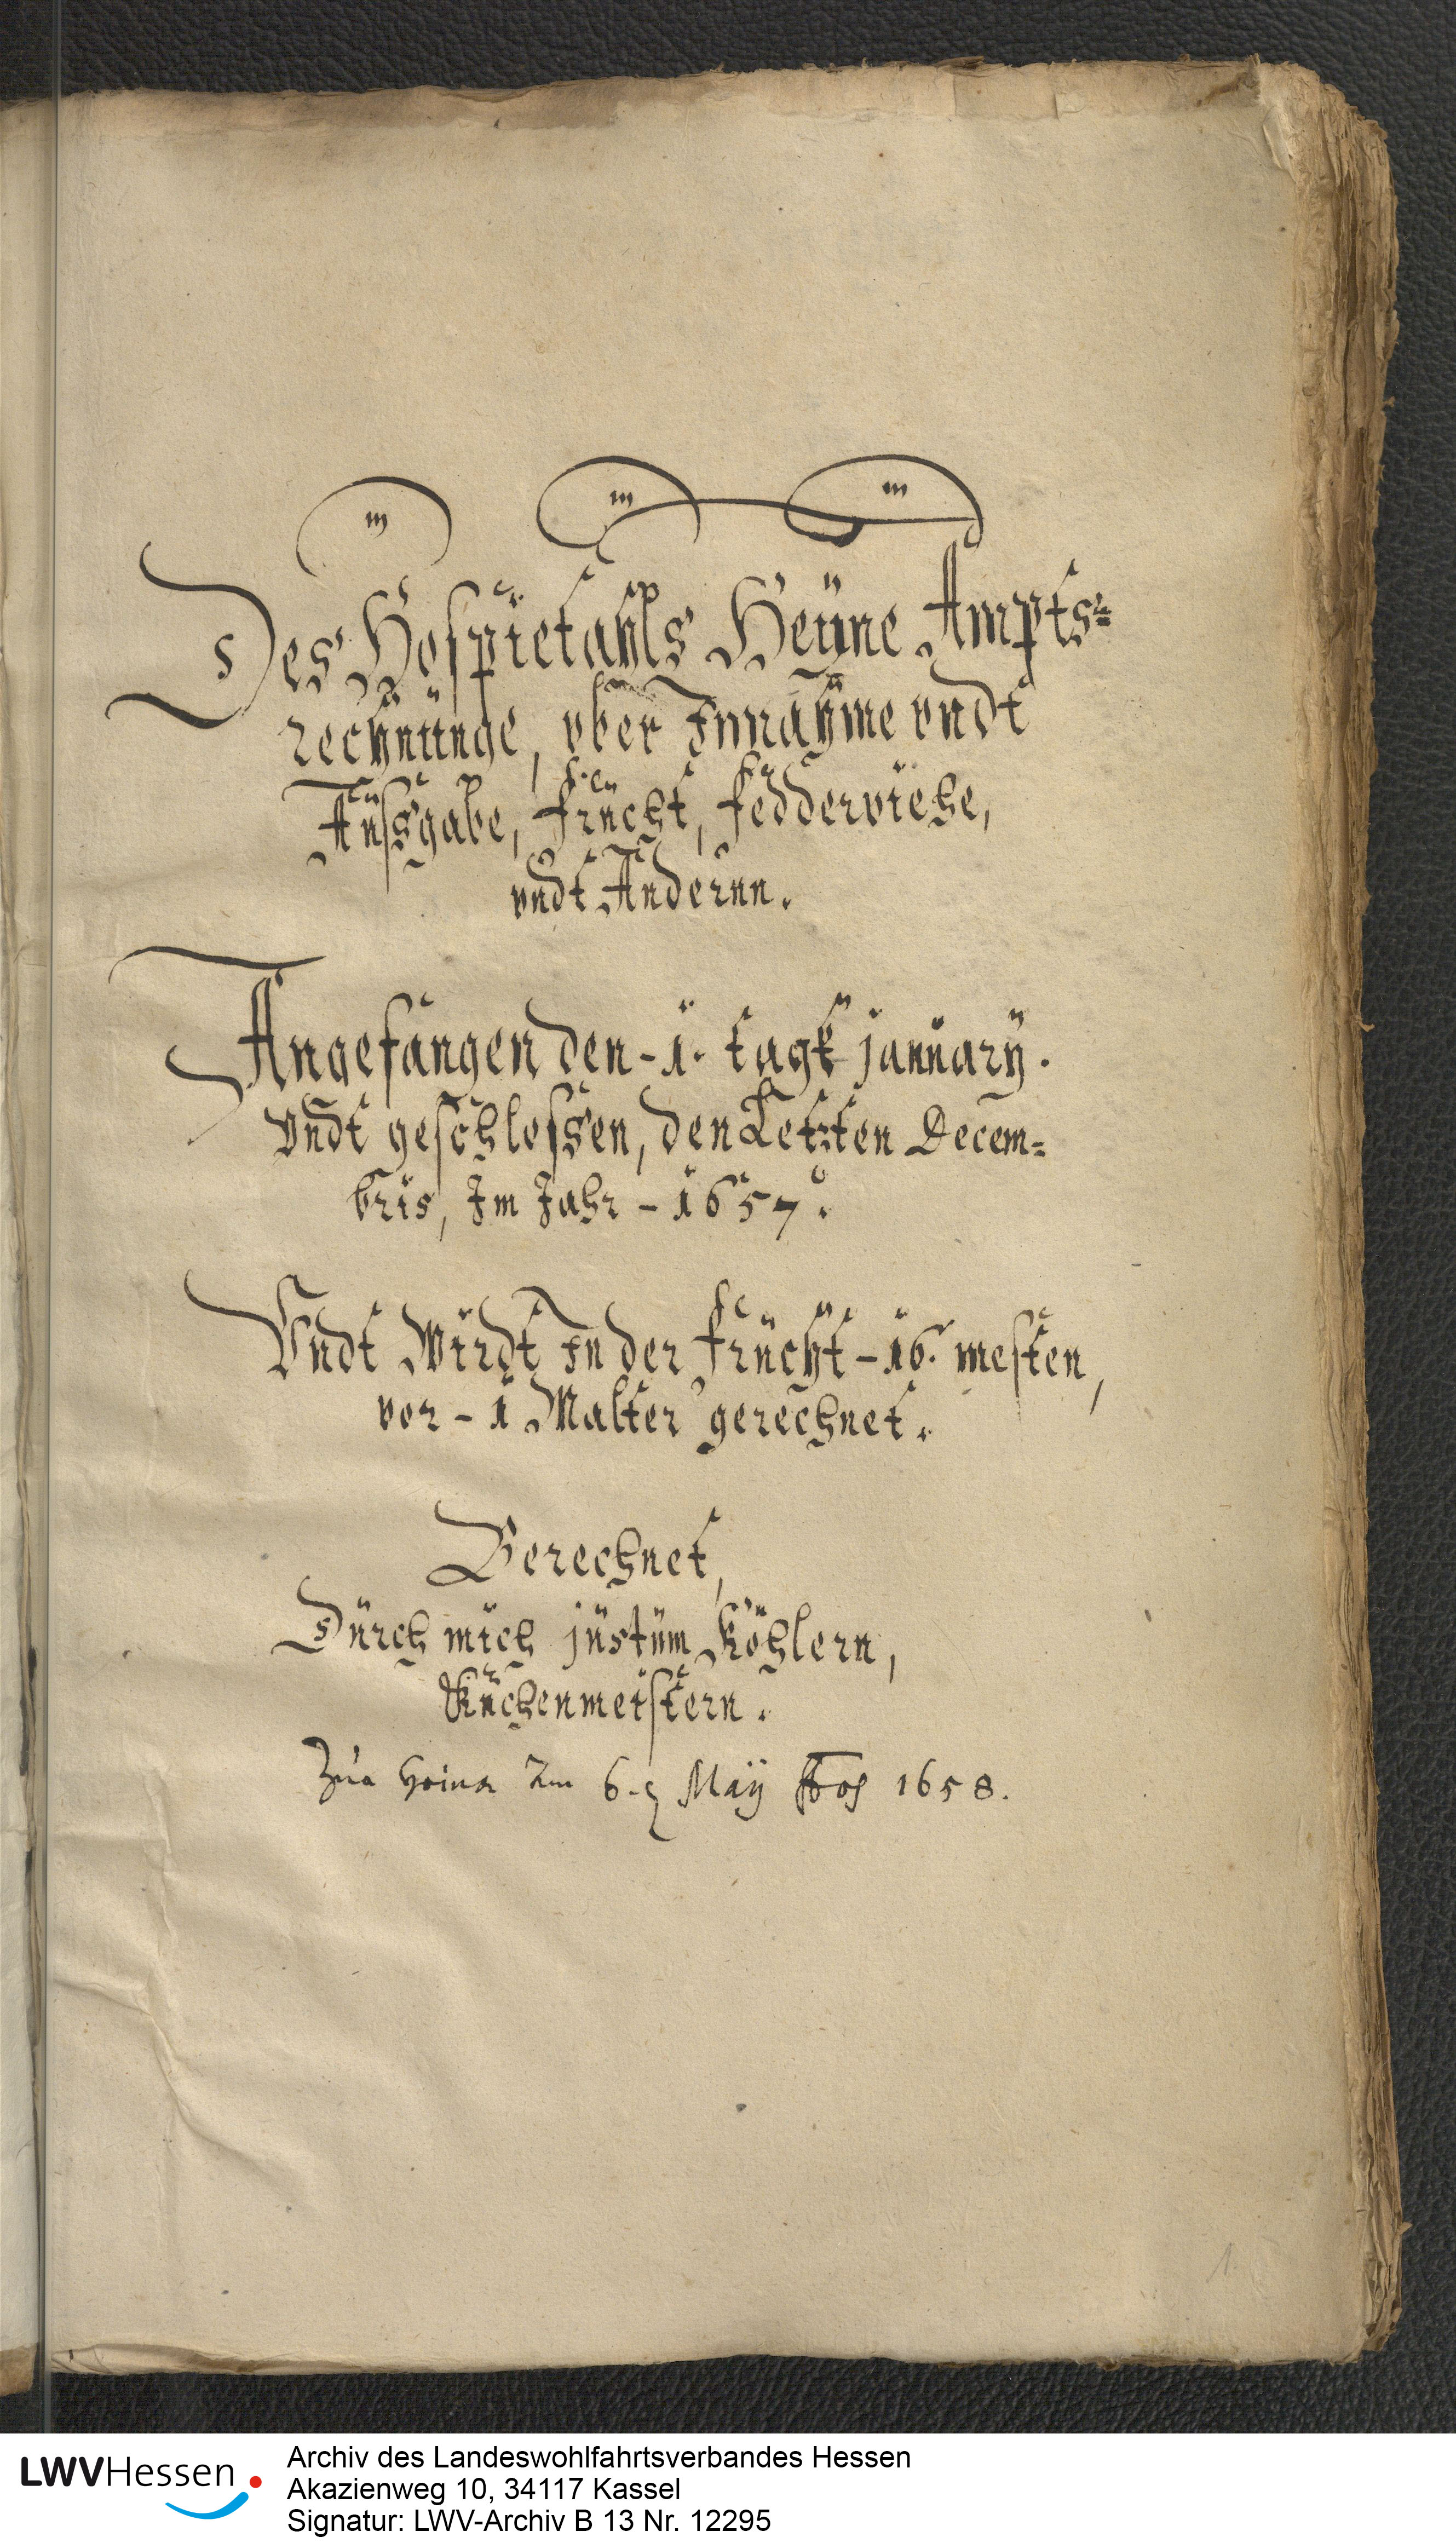 Des Hospietahls Heÿne Ampts=
rechnunge, vber Innahme vndt
Außgabe, frücht, fedderviehe,
vndt Andernn.
Angefangen den - 1. tagk january.
Vndt geschloßen, den Letzten Decem=
bris, Im Jahr - 1657.
Vndt Wirdt In der frücht - 16. mesten,
vor - 1 Malter gerechnet.
Berechnet,
Dürch mich jüstüm Köhlern,
Küchenmeistern.
Zur Heina 6. Maÿ 1658.
1
LWVHessen
Archiv des Landeswohlfahrtsverbandes Hessen
Akazienweg 10, 34117 Kassel
Signatur: LWV-Archiv B 13 Nr. 12295